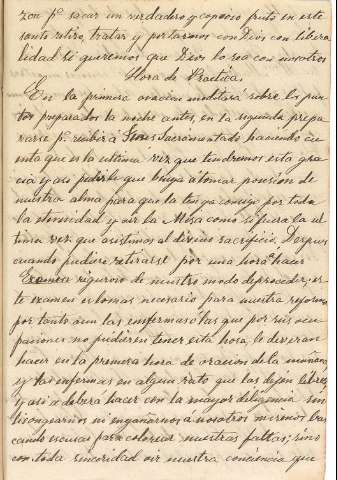 zon pª sacar un verdadero y copioso fruto en este
santo retiro, tratar y portarnos con Dios con libera
lidad si queremos que Dios lo sea con nosotros
Hora de Practica.
En la primera oracion meditará sobre los pun
tos preparados la noche antes, en la segunda prepa
rarse pª recibir á Jesus Sacramentado haciendo cu
enta que es la ultima vez que tendremos esta gra
cia y asi pedirle que venga á tomar posesion de
nuestra alma para que la tenga consigo por toda
la eternidad y oir la Misa como si fuera la ul
tima vez que asistimos al divino sacrificio. Despues
cuando pudiere retirarse por una hora hacer
Examen riguroso de nuestro modo de proceder, es
te examen es lo mas necesario para nuestra reforma
por tanto aun las enfermas ó las que por sus ocu
paciones no pudieren tener esta hora, lo deveran
hacer en la primera hora de oracion de la mañana
y las enfermas en algun rato que las dejen libres
y asi se debera hacer con la mayor diligencia sin
lisongearnos ni engañarnos á nosotros mismos bus
cando escusas para colorear nuestras faltas; sino
con toda sinceridad oir nuestra conciencia que